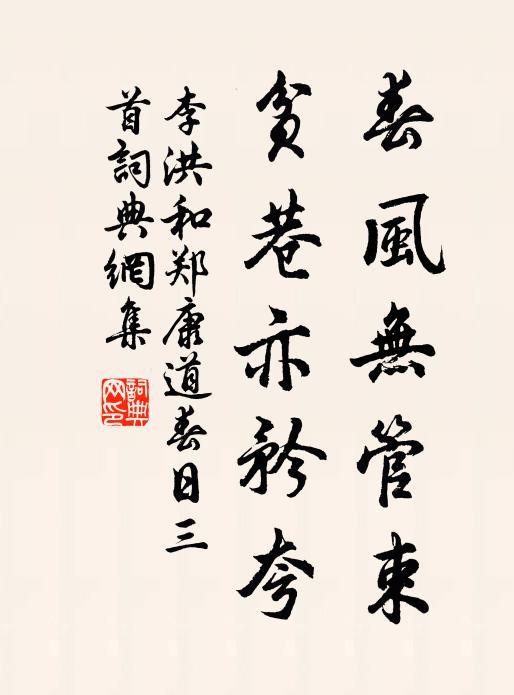 春風無管束
貧巷亦矜夸
李洪和郑康道春日三
首詞典網集
詞典
网印